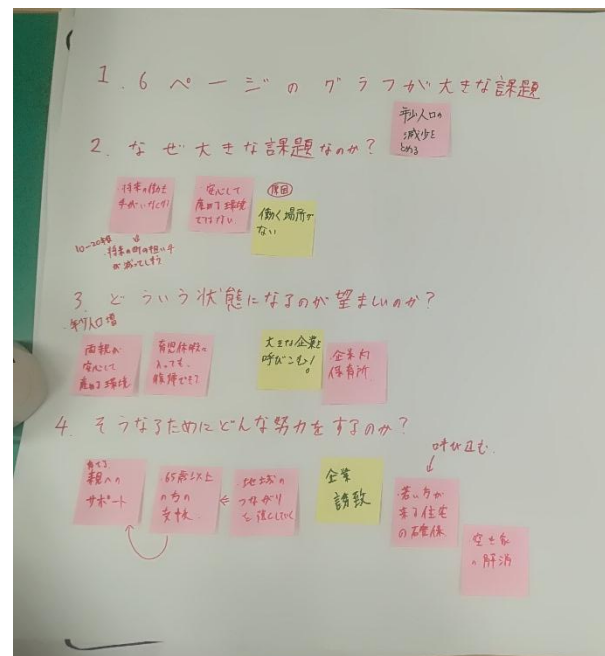 1. 6ページのグラフが大きな課題
年少人口の
減少を
とめる
2. なぜ大きな課題なのか?
将来の働き
手がいなくなる
安心して
産める環境
ではない
原因
働く場所が
ない
10-20年後
将来の町の担い手
が減ってしまう
3. どういう状態になるのが望ましいのか?
年少人口増
両親が
安心して
産める環境
育児休暇に
入っても、
復帰できる
大きな企業を
呼びこむ!
企業内
保育所
4. そうなるためにどんな努力をするのか?
呼び込む.
育てる
親への
サポート
65歳以上
の方の
支援.
地域の
つながり
を強くしていく
企業
誘致
若い方が
来る住宅
の確保
空き家
の解消